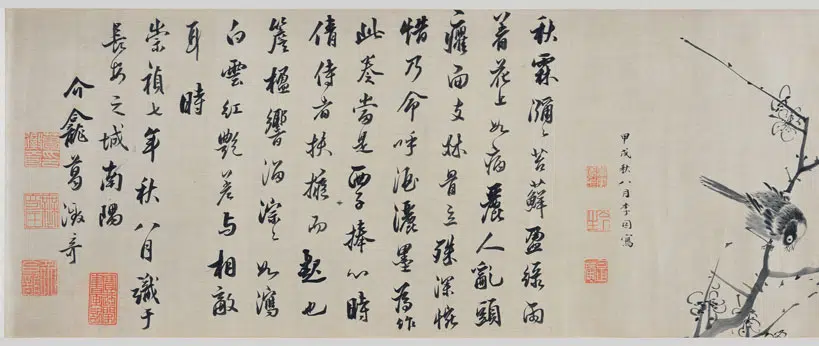 甲戌秋八月李因寫
秋霖々苔蘚盈綠雨
着花上如病麗人亂頭
癯面支牀骨立殊深憐
惜乃命呼酒灑墨爲作
此卷當是西子捧心時
倩侍者扶掖而起也
簷楹響溜淙々如瀉
白雲紅艷若與相敵
耳時
崇禎七年秋八月識于
長安之城南隅
介龕葛徵奇